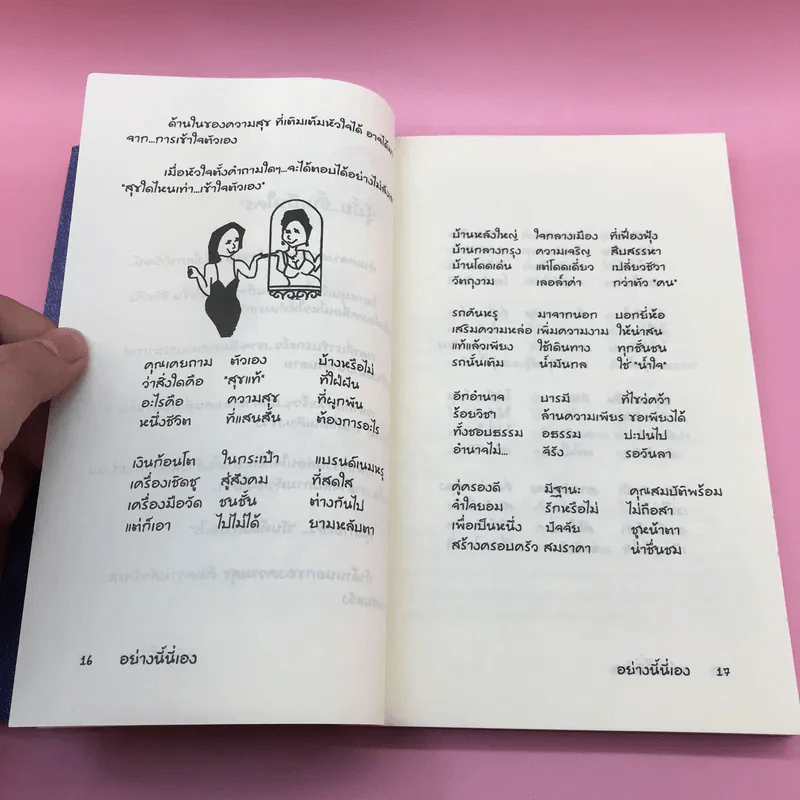 ด้านในของความสุข ที่เติมเต็มหัวใจได้ อาจได้มา
จาก...การเข้าใจตัวเอง
เมื่อหัวใจตั้งคำถามใดๆ...จะได้ตอบได้อย่างไม่
"สุขใดไหนเท่า...เข้าใจตัวเอง"
คุณเคยถาม ตัวเอง บ้างหรือไม่
ว่าสิ่งใดคือ "สุขแท้" ที่ใฝ่ฝัน
อะไรคือ ความสุข ที่ผูกพัน
หนึ่งชีวิต ที่แสนสั้น ต้องการอะไร
เงินก้อนโต ในกระเป๋า แบรนด์เนมหรู
เครื่องเชิดชู สู่สังคม ที่สดใส
เครื่องมือวัด ชนชั้น ต่างกันไป
แต่ก็เอา ไปไม่ได้ ยามหลับตา
16 อย่างนี้นี่เอง
บ้านหลังใหญ่ ใจกลางเมือง ที่เฟื่องฟุ้ง
บ้านกลางกรุง ความเจริญ สืบสรรหา
บ้านโดดเด่น แต่โดดเดี่ยว เปลี่ยวชีวา
วัตถุงาม เลอล้ำค่า กว่าตัว "คน"
รถคันหรู มาจากนอก บอกยี่ห้อ
เสริมความหล่อ เพิ่มความงาม ให้น่าสน
แท้แล้วเพียง ใช้เดินทาง ทุกชั้นชน
รถนั้นเติม น้ำมันกล ใช้ "น้ำใจ"
อีกอำนาจ บารมี ที่ไขว่คว้า
ร้อยวิชา ล้านความเพียร ขอเพียงได้
ทั้งชอบธรรม อธรรม ปะปนไป
อำนาจไม่... จีรัง รอวันลา
คู่ครองดี มีฐานะ คุณสมบัติพร้อม
จำใจยอม รักหรือไม่ ไม่ถือสา
เพื่อเป็นหนึ่ง ปัจจัย ชูหน้าตา
สร้างครอบครัว สมราคา น่าชื่นชม
อย่างนี้นี่เอง 17